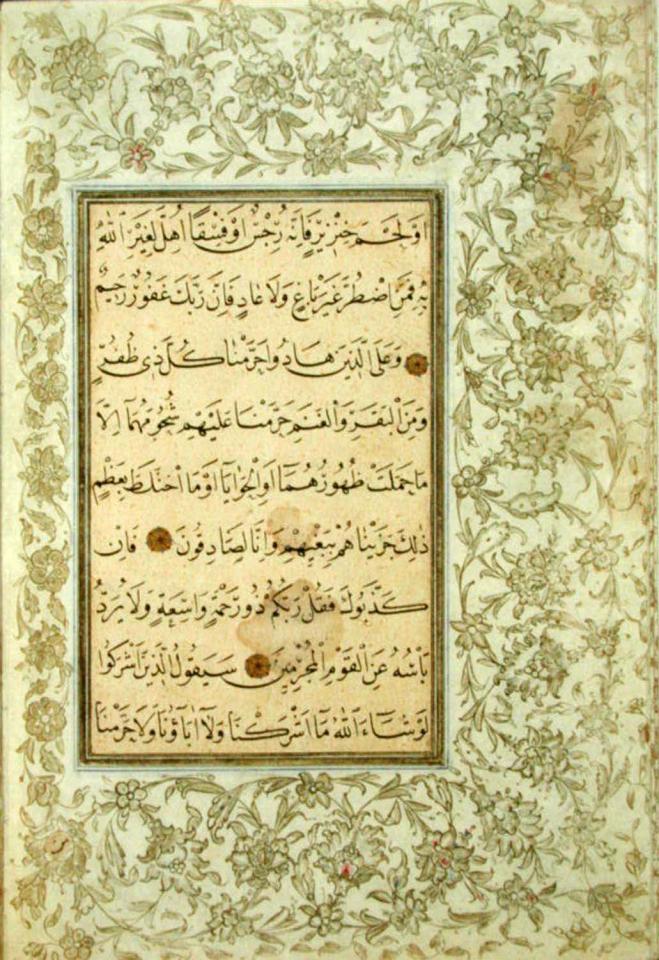 اَوْ لَحْمَ خِنْزِيرٍ فَاِنَّهُ رِجْسٌ اَوْ فِسْقًا اُهِلَّ لِغَيْرِ اللّٰهِ
بِهِ فَمَنِ اضْطُرَّ غَيْرَ بَاغٍ وَلَا عَادٍ فَاِنَّ رَبَّكَ غَفُورٌ رَحِيمٌ
وَعَلَى الَّذِينَ هَادُوا حَرَّمْنَا كُلَّ ذِى ظُفُرٍ
وَمِنَ الْبَقَرِ وَالْغَنَمِ حَرَّمْنَا عَلَيْهِمْ شُحُومَهُمَا اِلَّا
مَا حَمَلَتْ ظُهُورُهُمَا اَوِ الْحَوَايَا اَوْ مَا اخْتَلَطَ بِعَظْمٍ
ذٰلِكَ جَزَيْنَاهُمْ بِبَغْيِهِمْ وَاِنَّا لَصَادِقُونَ فَاِنْ
كَذَّبُوكَ فَقُلْ رَبُّكُمْ ذُو رَحْمَةٍ وَاسِعَةٍ وَلَا يُرَدُّ
بَاْسُهُ عَنِ الْقَوْمِ الْمُجْرِمِينَ سَيَقُولُ الَّذِينَ اَشْرَكُوا
لَوْ شَاءَ اللّٰهُ مَا اَشْرَكْنَا وَلَا اٰبَاؤُنَا وَلَا حَرَّمْنَا